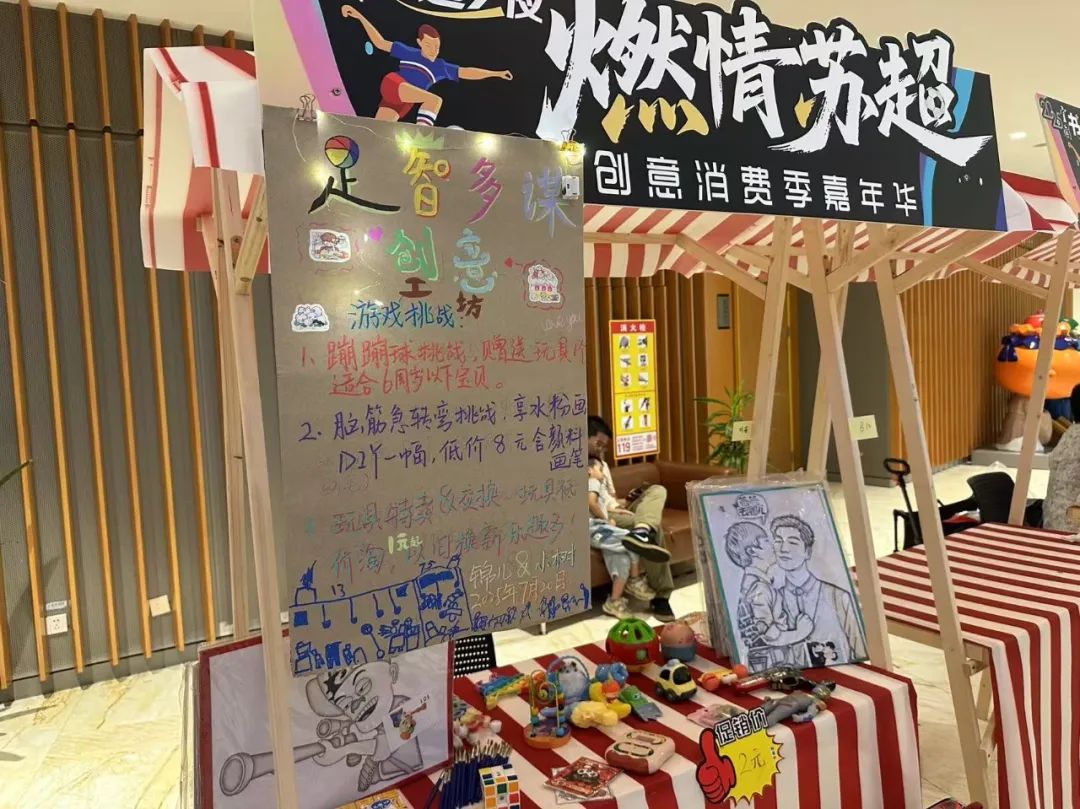 燃情苏超
创意消费季嘉年华
足智多谋
创意
工坊
游戏挑战:
1、蹦蹦球挑战,赠送玩具1个
适合6周岁以下宝贝。
2、脑筋急转弯挑战,享水粉画
DIY一幅,低价8元含颜料
画笔
玩具特卖&交换
玩具低
价淘,1元起,以旧换新乐趣多!
锦儿&小树
2025年7月20日
13
消火栓
119
促销价
2元